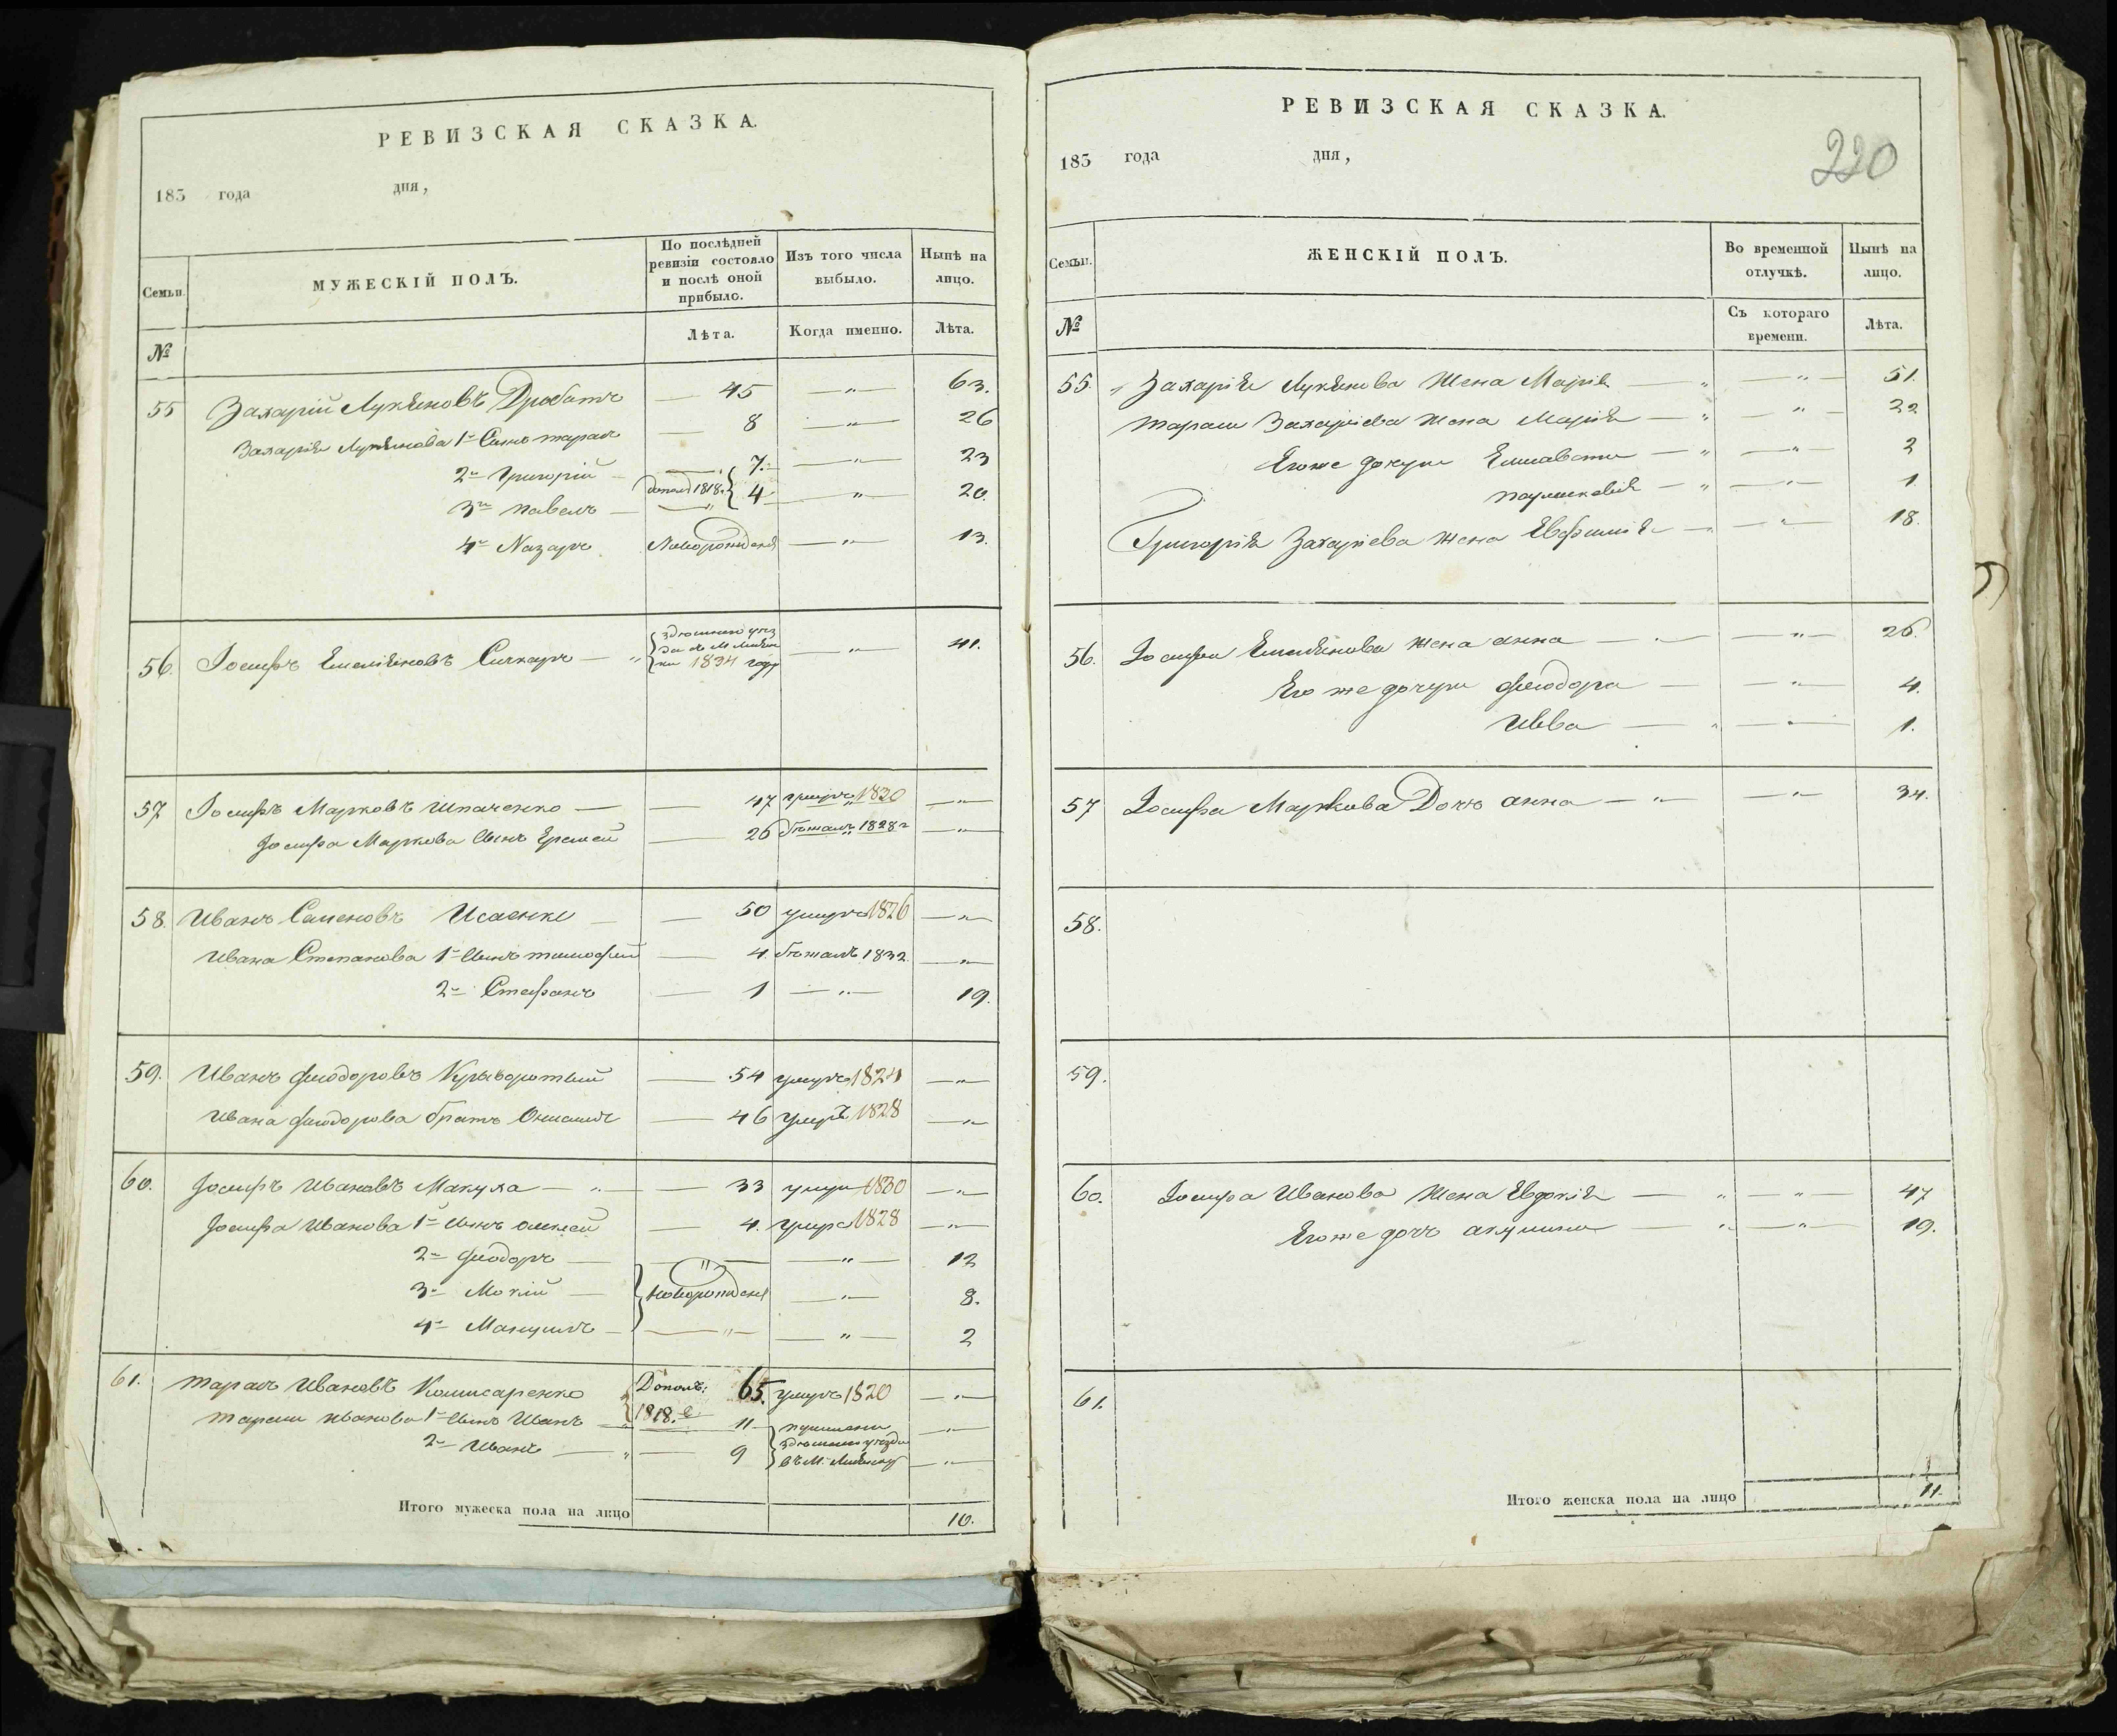 РЕВИЗСКАЯ СКАЗКА.
183 года дня,
Семьи. МУЖЕСКІЙ ПОЛЪ. По послѣдней ревизіи состояло и послѣ оной прибыло. Изъ того числа выбыло. Нынѣ на лицо.
№ Лѣта. Когда именно. Лѣта.
55 Захарій Лукьяновъ Дробатъ 45 — " — 63.
Захарія Лукьянова 1й Сынъ тарасъ 8 — " — 26
2й Григорій 7. — " — 23
3й павелъ допол 1818. 4 — " — 20.
4й Назаръ Новорожденъ — " — 13.
56. Іосифъ Емельяновъ Сичкаръ здешнего уез
да въ М 1834 году — " — 41.
57 Іосифъ Марковъ Шпаченко 47 умеръ 1820 — " —
Іосифа Маркова Сынъ Еремей 26 бежалъ 1828 г — " —
58. Иванъ Семеновъ Исаенко 50 умеръ 1826 — " —
Ивана Степанова 1й Сынъ тимофей 4. бежалъ 1832 — " —
2й Стефанъ 1 — " — 19.
59. Иванъ феодоровъ Крыворотый 54 умеръ 1824 — " —
Ивана феодорова братъ Онисимъ 46 умеръ 1828 — " —
60. Іосифъ Ивановъ Макуха 33 умеръ 1830 — " —
Іосифа Иванова 1й Сынъ алексей 4. умеръ 1828 — " —
2й феодоръ — " — 12
3й Мокій Новорожденъ — " — 8.
4й Мануилъ — " — — " — 2
61. тарасъ Ивановъ Комисаренко Дополъ: 65. умеръ 1820 — " —
тараса иванова 1й Сынъ Иванъ 1818. 11 — " —
2й Иванъ 9 здешнего уезда
въ М. — " —
Итого мужеска пола на лицо 10.
РЕВИЗСКАЯ СКАЗКА.
220
183 года дня,
Семьи. ЖЕНСКІЙ ПОЛЪ. Во временной отлучкѣ. Нынѣ на лицо.
№ Съ котораго времени. Лѣта.
55. Захарія Лукьянова Жена Марія — " — 51.
тараса Захаріева жена Марія — " — 22
Его же дочери Елисавета — " — 2
— " — 1
Григорія Захаріева жена Евфимія — " — 18.
56. Іосифа Емельянова жена анна — " — 26.
Его же дочери феодора — " — 4.
Ивва — " — 1.
57 Іосифа Маркова Дочь анна — " — 34.
58.
59.
60. Іосифа Иванова Жена Евдокія — " — 47
Его же дочь акулина — " — 19.
61.
Итого женска пола на лицо 11.